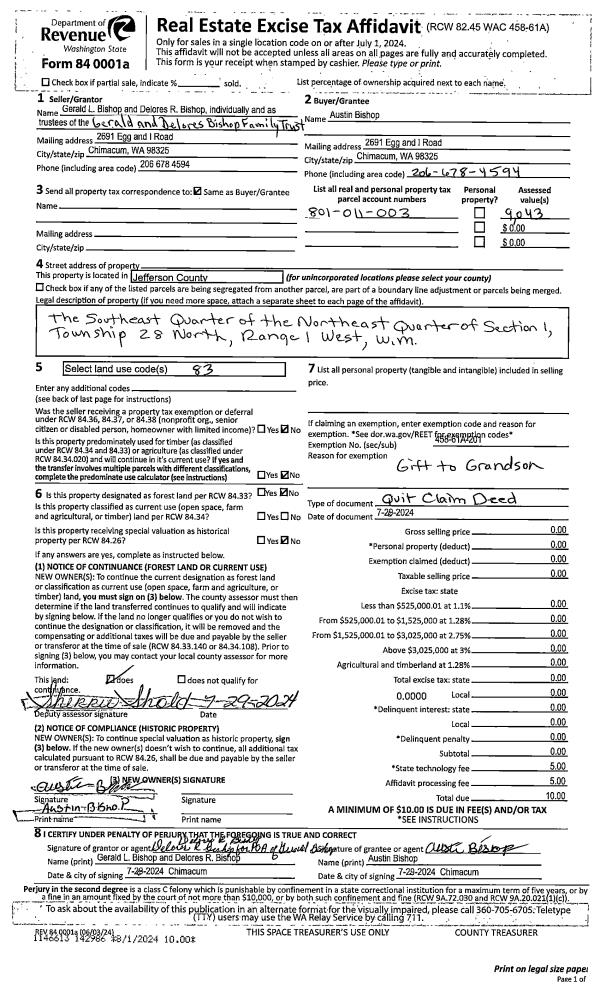 Department of
Revenue
Washington State
Form 84 0001a
Real Estate Excise Tax Affidavit (RCW 82.45 WAC 458-61A)
Only for sales in a single location code on or after July 1, 2024.
This affidavit will not be accepted unless all areas on all pages are fully and accurately completed.
This form is your receipt when stamped by cashier. Please type or print.
Check box if partial sale, indicate % sold.
List percentage of ownership acquired next to each name.
1 Seller/Grantor
Name Gerald L. Bishop and Delores R. Bishop, individually and as
trustees of the Gerald and Delores Bishop Family Trust
Mailing address 2691 Egg and I Road
City/state/zip Chimacum, WA 98325
Phone (including area code) 206 678 4594
2 Buyer/Grantee
Name Austin Bishop
Mailing address 2691 Egg and I Road
City/state/zip Chimacum, WA 98325
Phone (including area code) 206-678-4594
3 Send all property tax correspondence to: Same as Buyer/Grantee
Name
Mailing address
City/state/zip
List all real and personal property tax
parcel account numbers
Personal
property?
Assessed
value(s)
801-011-003
9,043
$ 0.00
$ 0.00
4 Street address of property
This property is located in Jefferson County (for unincorporated locations please select your county)
Check box if any of the listed parcels are being segregated from another parcel, are part of a boundary line adjustment or parcels being merged.
Legal description of property (if you need more space, attach a separate sheet to each page of the affidavit).
The Southeast Quarter of the Northeast Quarter of Section 1,
Township 28 North, Range 1 West, W.M.
5 Select land use code(s) 83
Enter any additional codes
(see back of last page for instructions)
Was the seller receiving a property tax exemption or deferral
under RCW 84.36, 84.37, or 84.38 (nonprofit org., senior
citizen or disabled person, homeowner with limited income)? Yes No
Is this property predominately used for timber (as classified
under RCW 84.34 and 84.33) or agriculture (as classified under
RCW 84.34.020) and will continue in it's current use? If yes and
the transfer involves multiple parcels with different classifications,
complete the predominate use calculator (see instructions) Yes No
6 Is this property designated as forest land per RCW 84.33? Yes No
Is this property classified as current use (open space, farm
and agricultural, or timber) land per RCW 84.34? Yes No
Is this property receiving special valuation as historical
property per RCW 84.26? Yes No
If any answers are yes, complete as instructed below.
(1) NOTICE OF CONTINUANCE (FOREST LAND OR CURRENT USE)
NEW OWNER(S): To continue the current designation as forest land
or classification as current use (open space, farm and agriculture, or
timber) land, you must sign on (3) below. The county assessor must then
determine if the land transferred continues to qualify and will indicate
by signing below. If the land no longer qualifies or you do not wish to
continue the designation or classification, it will be removed and the
compensating or additional taxes will be due and payable by the seller
or transferor at the time of sale (RCW 84.33.140 or 84.34.108). Prior to
signing (3) below, you may contact your local county assessor for more
information.
This land: does does not qualify for
continuance.
Sherrie Shold 7-29-2024
Deputy assessor signature Date
(2) NOTICE OF COMPLIANCE (HISTORIC PROPERTY)
NEW OWNER(S): To continue special valuation as historic property, sign
(3) below. If the new owner(s) doesn't wish to continue, all additional tax
calculated pursuant to RCW 84.26, shall be due and payable by the seller
or transferor at the time of sale.
(3) NEW OWNER(S) SIGNATURE
Signature Signature
Austin Bishop
Print name Print name
7 List all personal property (tangible and intangible) included in selling
price.
If claiming an exemption, enter exemption code and reason for
exemption. *See dor.wa.gov/REET for exemption codes*
Exemption No. (sec/sub) 458-61A-201
Reason for exemption
Gift to Grandson
Type of document Quit Claim Deed
Date of document 7-29-2024
Gross selling price 0.00
*Personal property (deduct) 0.00
Exemption claimed (deduct) 0.00
Taxable selling price 0.00
Excise tax: state
Less than $525,000.01 at 1.1% 0.00
From $525,000.01 to $1,525,000 at 1.28% 0.00
From $1,525,000.01 to $3,025,000 at 2.75% 0.00
Above $3,025,000 at 3% 0.00
Agricultural and timberland at 1.28% 0.00
Total excise tax: state 0.00
0.0000 Local 0.00
*Delinquent interest: state 0.00
Local 0.00
*Delinquent penalty 0.00
Subtotal 0.00
*State technology fee 5.00
Affidavit processing fee 5.00
Total due 10.00
A MINIMUM OF $10.00 IS DUE IN FEE(S) AND/OR TAX
*SEE INSTRUCTIONS
8 I CERTIFY UNDER PENALTY OF PERJURY THAT THE FOREGOING IS TRUE AND CORRECT
Signature of grantor or agent
Name (print) Gerald L. Bishop and Delores R. Bishop
Date & city of signing 7-29-2024 Chimacum
Signature of grantee or agent Austin Bishop
Name (print) Austin Bishop
Date & city of signing 7-29-2024 Chimacum
Perjury in the second degree is a class C felony which is punishable by confinement in a state correctional institution for a maximum term of five years, or by
a fine in an amount fixed by the court of not more than $10,000, or by both such confinement and fine (RCW 9A.72.030 and RCW 9A.20.021(1)(c)).
To ask about the availability of this publication in an alternate format for the visually impaired, please call 360-705-6705. Teletype
(TTY) users may use the WA Relay Service by calling 711.
REV 84 0001a (06/03/24) THIS SPACE TREASURER'S USE ONLY COUNTY TREASURER
1146613 142986 8/1/2024 10.00
Print on legal size paper
Page 1 of